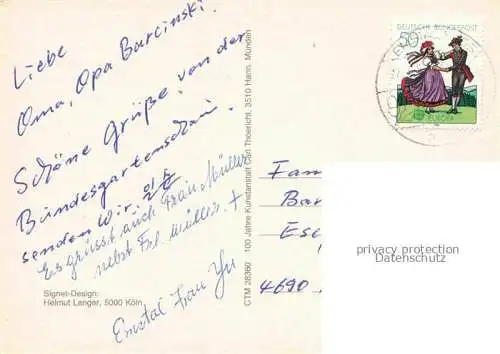 Liebe
Oma, Opa Barcinski.
Schöne Grüße von der
Bundesgartenschau
senden Wir.
Es grüsst auch Frau Müller
nebst Frl. Müller. +
Emstal Frau Yu
Signet-Design:
Helmut Langer, 5000 Köln
CTM 28360 100 Jahre Kunstanstalt Carl Thoericht, 3510 Hann. Münden
50
DEUTSCHE BUNDESPOST
EUROPA
Fam
Bar
Ese
4690
privacy protection
Datenschutz